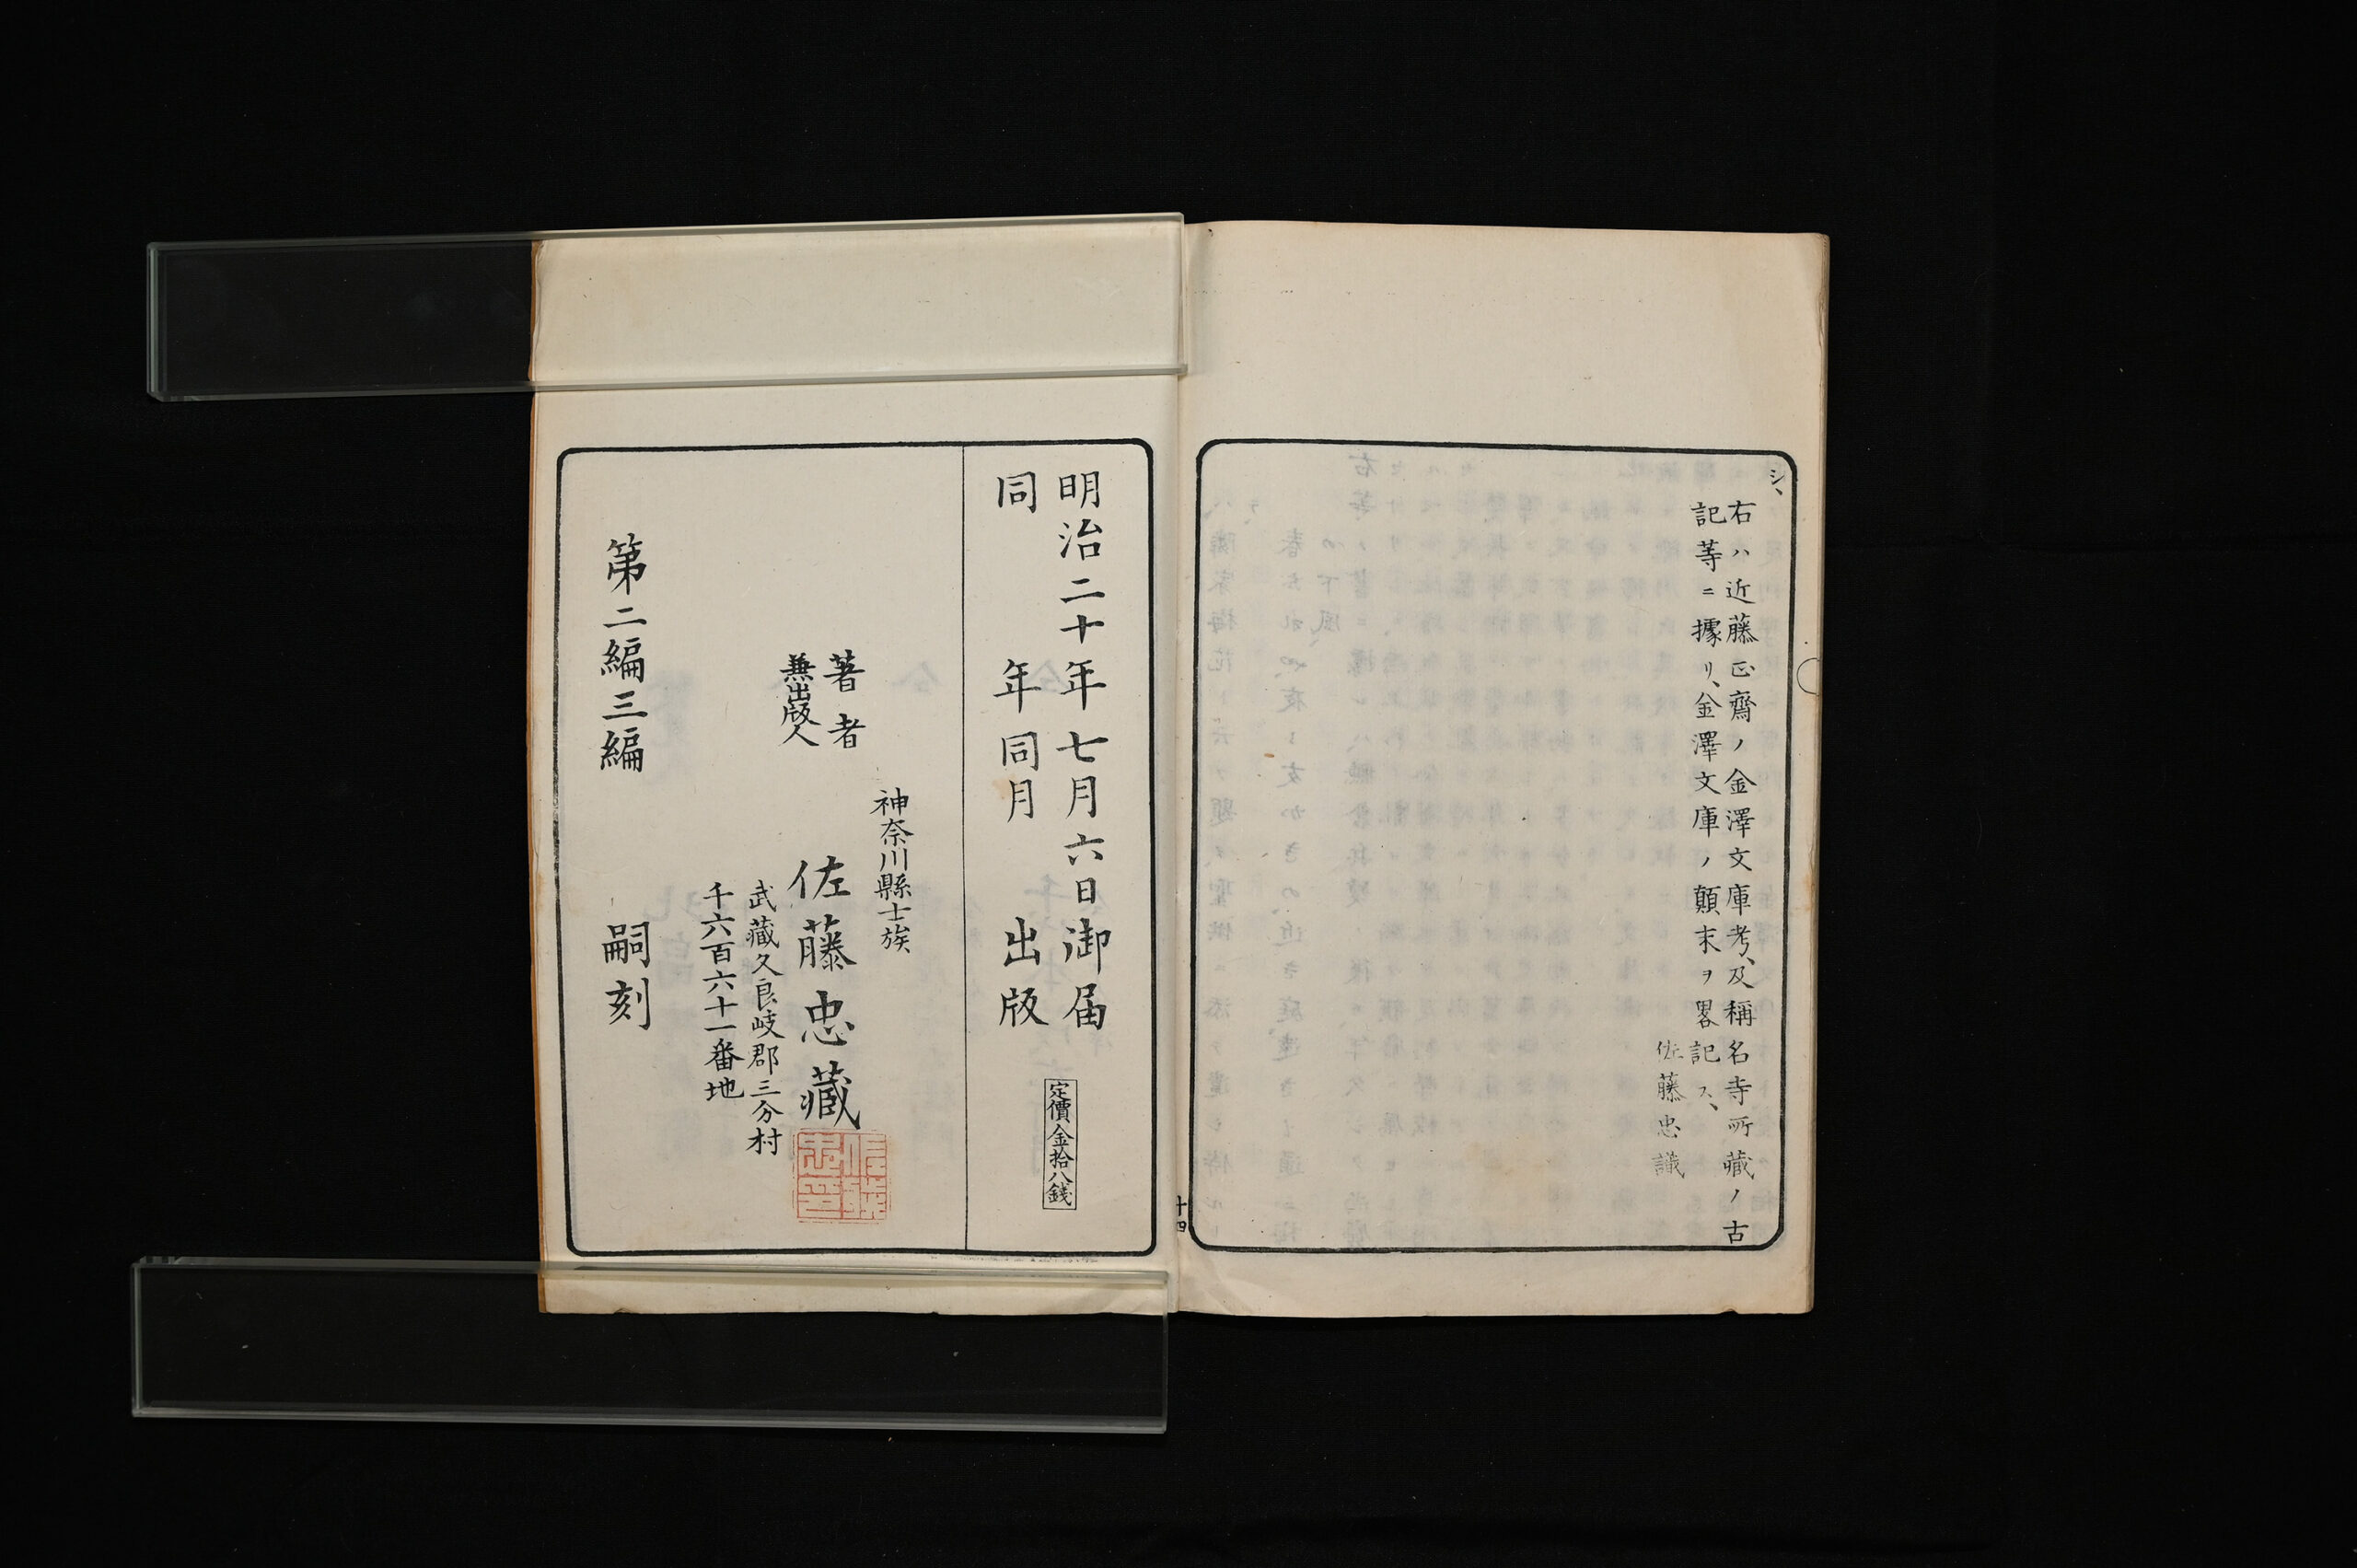 シ、
右ハ近藤正齋ノ金澤文庫考、及稱名寺所藏ノ古
記等ニ據リ、金澤文庫ノ顛末ヲ畧記ス、
佐藤忠識
十四
明治二十年七月六日御届
同年同月出版
定價金拾八銭
神奈川縣士族
著者
兼出版人
佐藤忠藏
武藏久良岐郡三分村
千六百六十一番地
第二編三編嗣刻